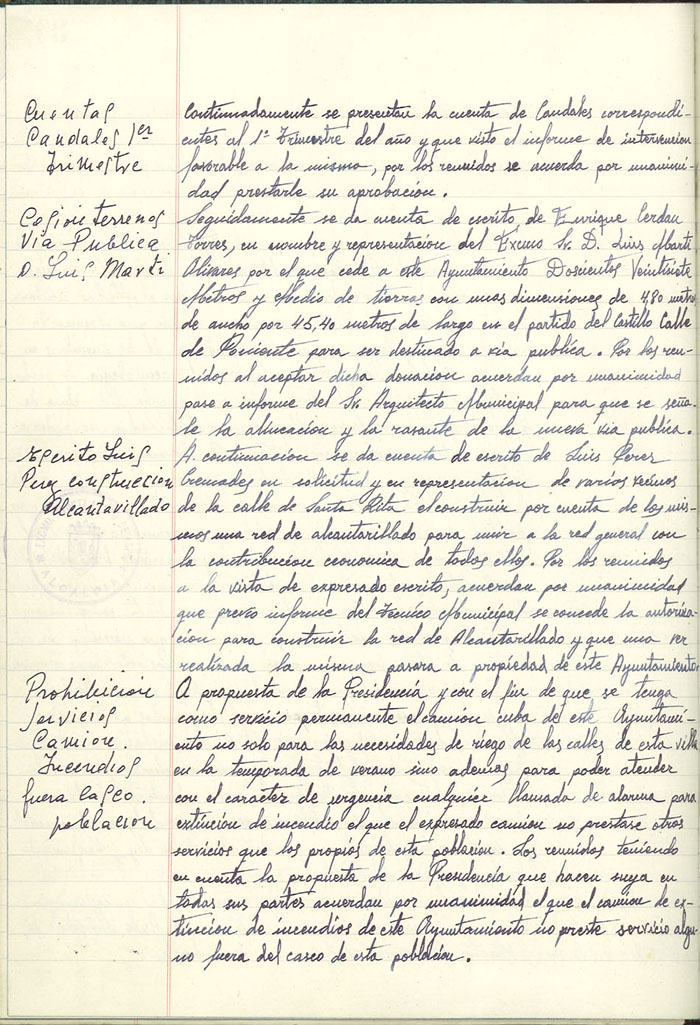 Cuentas
Caudales 1er
Trimestre
Continuadamente se presentan la cuenta de Caudales correspondi-
entes al 1º Trimestre del año y que visto el informe de intervencion
favorable a la misma, por los reunidos se acuerda por unanimi-
dad prestarle su aprobacion.
Cesion terrenos
Via Publica
D. Luis Marti
Seguidamente se da cuenta de escrito, de Enrique Cerdan
Torres, en nombre y representacion del Excmo Sr. D. Luis Marti
Olivares por el que cede a este Ayuntamiento Doscientos Veintisiete
Metros y Medio de tierras con unas dimensiones de 4,80 metros
de ancho por 45,40 metros de largo en el partido del Castillo Calle
de Poniente para ser destinado a via publica. Por los reu-
nidos al aceptar dicha donacion acuerdan por unanimidad
pase a informe del Sr. Arquitecto Municipal para que se seña-
le la alineacion y la rasante de la nueva via publica.
Escrito Luis
Perez construccion
Alcantarillado
A continuacion se da cuenta de escrito de Luis Perez
en solicitud y en representacion de varios vecinos
de la calle de Santa Rita el construir por cuenta de los mis-
mos una red de alcantarillado para unir a la red general con
la contribucion economica de todos ellos. Por los reunidos
a la vista de expresado escrito, acuerdan por unanimidad
que previo informe del Tecnico Municipal se concede la autoriza-
cion para construir la red de Alcantarillado y que una vez
realizada la misma pasara a propiedad de este Ayuntamiento.
Prohibicion
Servicios
Camion.
Incendios
fuera casco.
poblacion
A propuesta de la Presidencia y con el fin de que se tenga
como servicio permanente el camion cuba del este Ayuntami-
ento no solo para las necesidades de riego de las calles de esta villa
en la temporada de verano sino ademas para poder atender
con el caracter de urgencia cualquier llamada de alarma para
extincion de incendio el que el expresado camion no prestase otros
servicios que los propios de esta poblacion. Los reunidos teniendo
en cuenta la propuesta de la Presidencia que hacen suya en
todas sus partes acuerdan por unanimidad el que el camion de ex-
tincion de incendios de este Ayuntamiento no preste servicio algu-
no fuera del casco de esta poblacion.